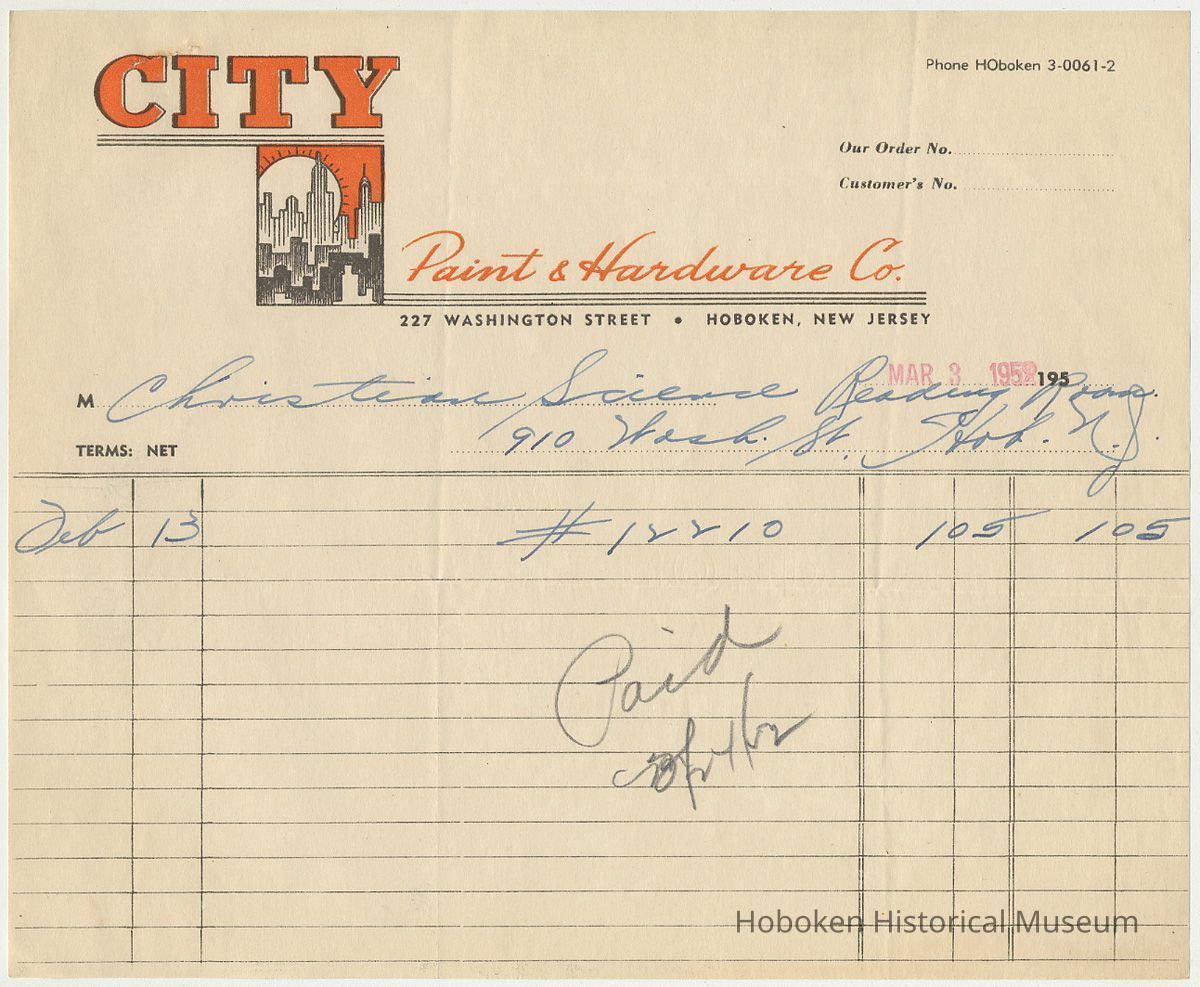 CITY
Phone HOboken 3-0061-2
Our Order No.
Customer's No.
Paint & Hardware Co.
227 WASHINGTON STREET • HOBOKEN, NEW JERSEY
MAR 3 1952 195
M Christian Science Reading Room.
TERMS: NET 910 Wash. St. Hob. N.J.
Feb 13 # 12210 105 105
Paid
Hoboken Historical Museum